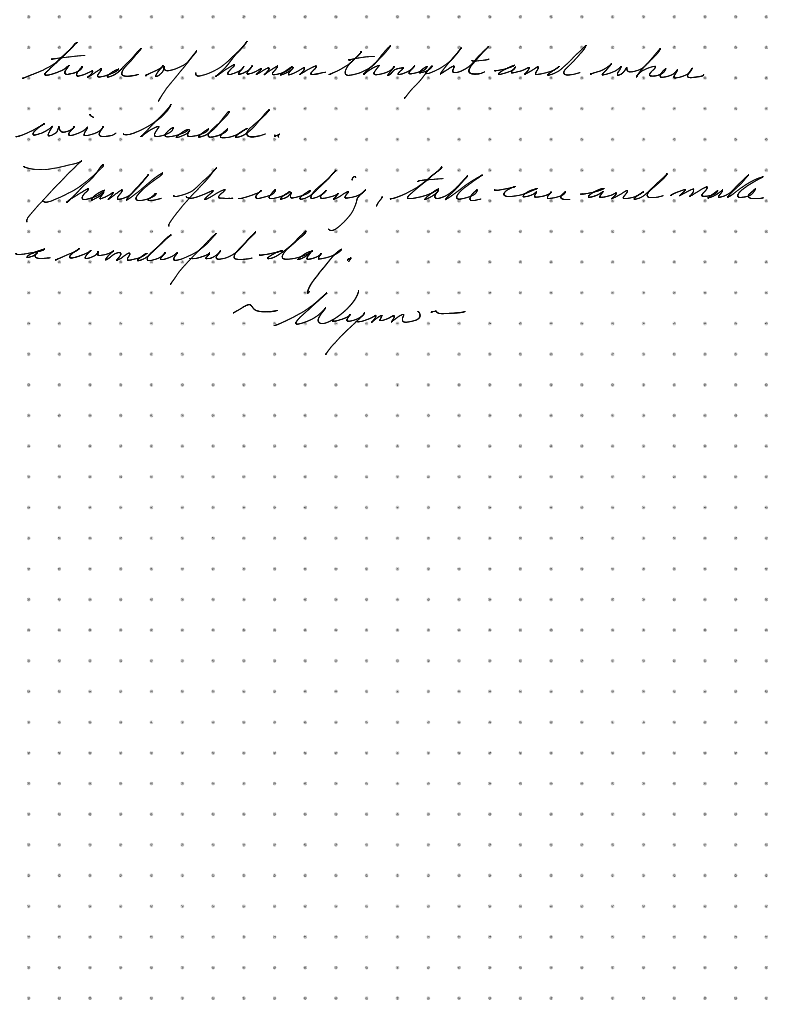 trend of human thought and where
we're headed.
Thanks for reading, take care and make
a wonderful day.
~ Wynn ~